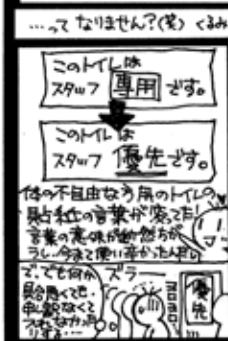 …って なりません?(笑) くるみ
このトイレは
スタッフ 専用 です。
このトイレは
スタッフ 優先 です。
体の不自由な方用のトイレの
貼紙の言葉が変てた!
言葉の意味が断然ちが
うし、今まで使い辛かったんだし
で、でも何か
具合悪くても
ズラー
ヨロヨロ
優先